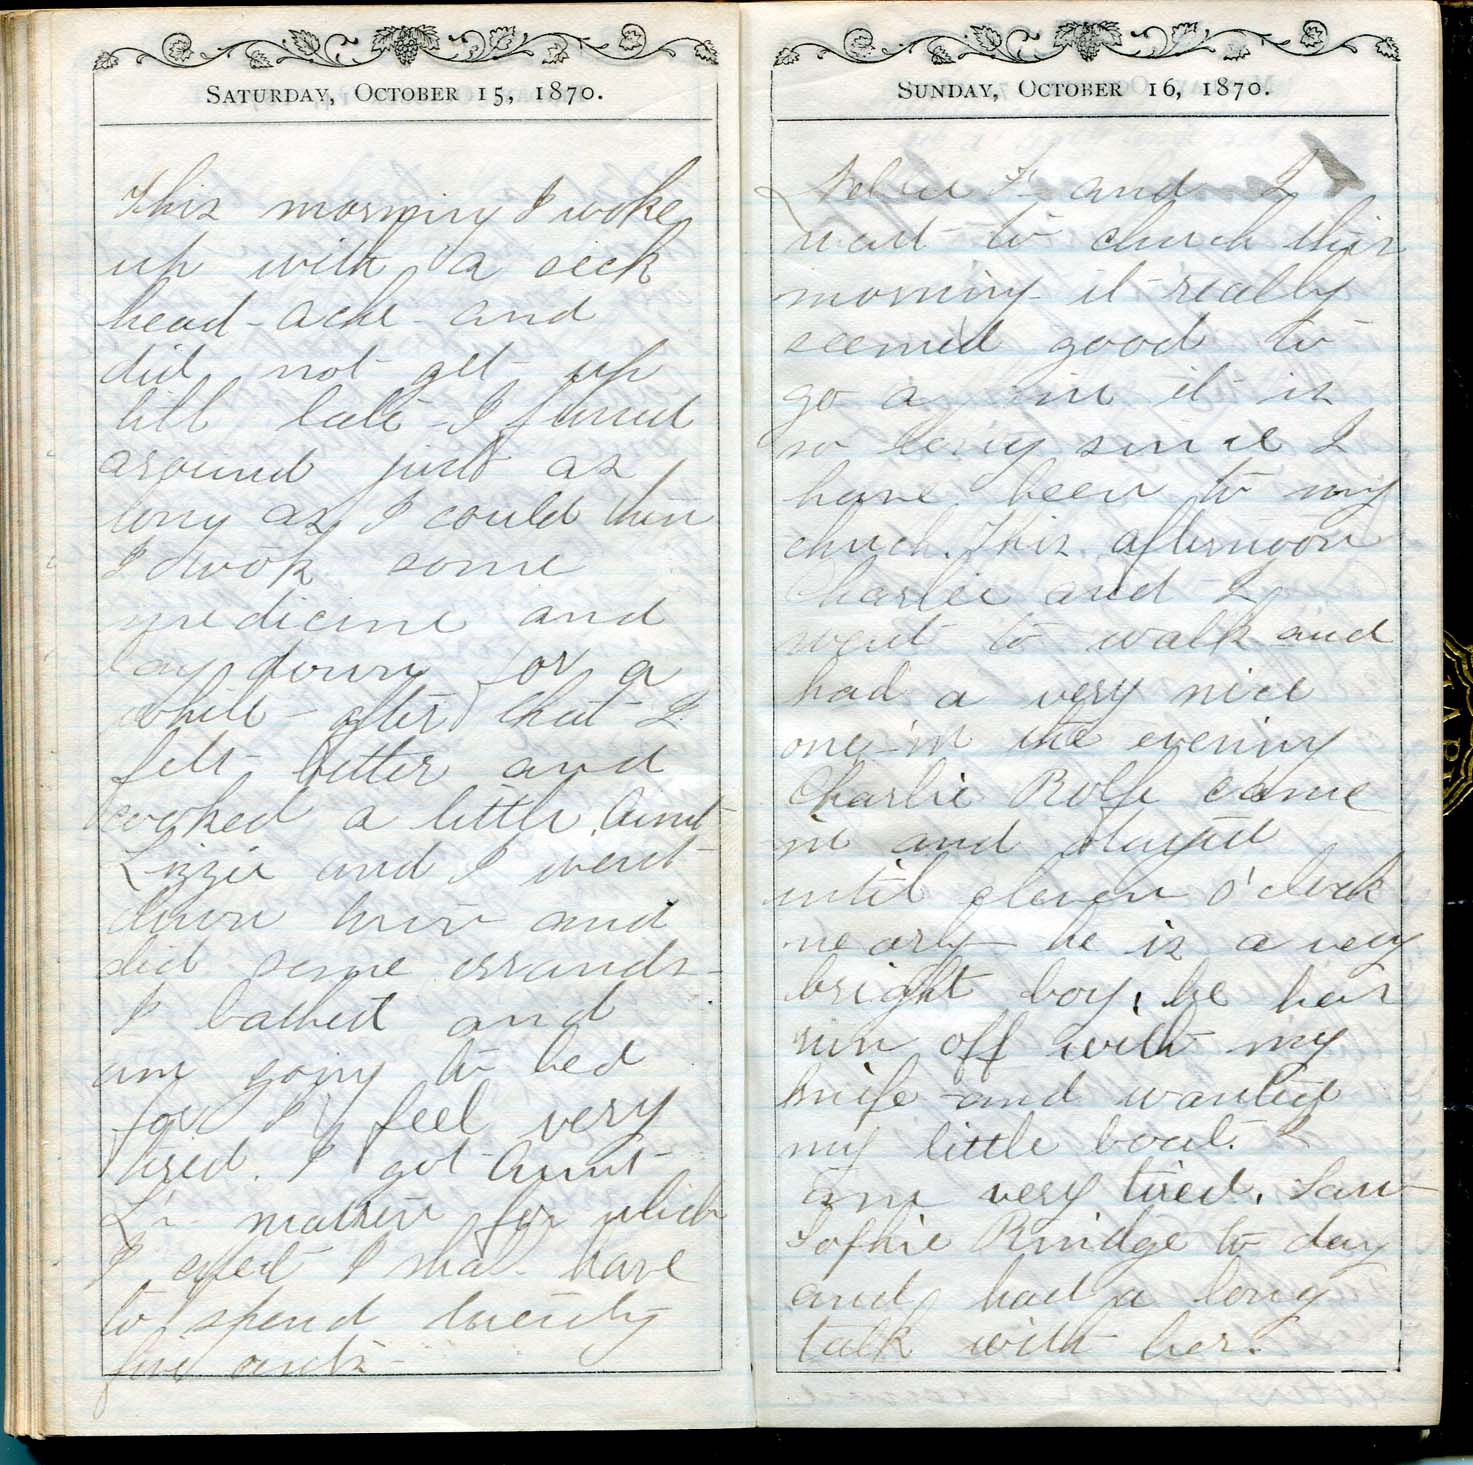 Saturday, October 15, 1870.
This morning I woke
up with a sick
head-ache and
did not get up
till late - I
around just as
long as I could then
I took some
medicine and
lay down for a
while - after that I
felt better and
cooked a little. Aunt
Lizzie and I went
down town and
did some errands -
I bathed and
am going to bed
for I feel very
tired. I got Aunt
L's for which
I I shall have
to spend twenty
five cents -
Sunday, October 16, 1870.
Nellie F. and I
went to church this
morning - it really
seemed good to
go again it is
so long since I
have been to my
church. This afternoon
Charlie and I
went to walk and
had a very nice
one - in the evening
Charlie Rolfe came
in and stayed
until eleven o'clock
nearly - he is a very
bright boy, he has
run off with my
knife and wanted
my little boat. I
am very tired. Saw
Sophie Rindge to day
and had a long
talk with her.